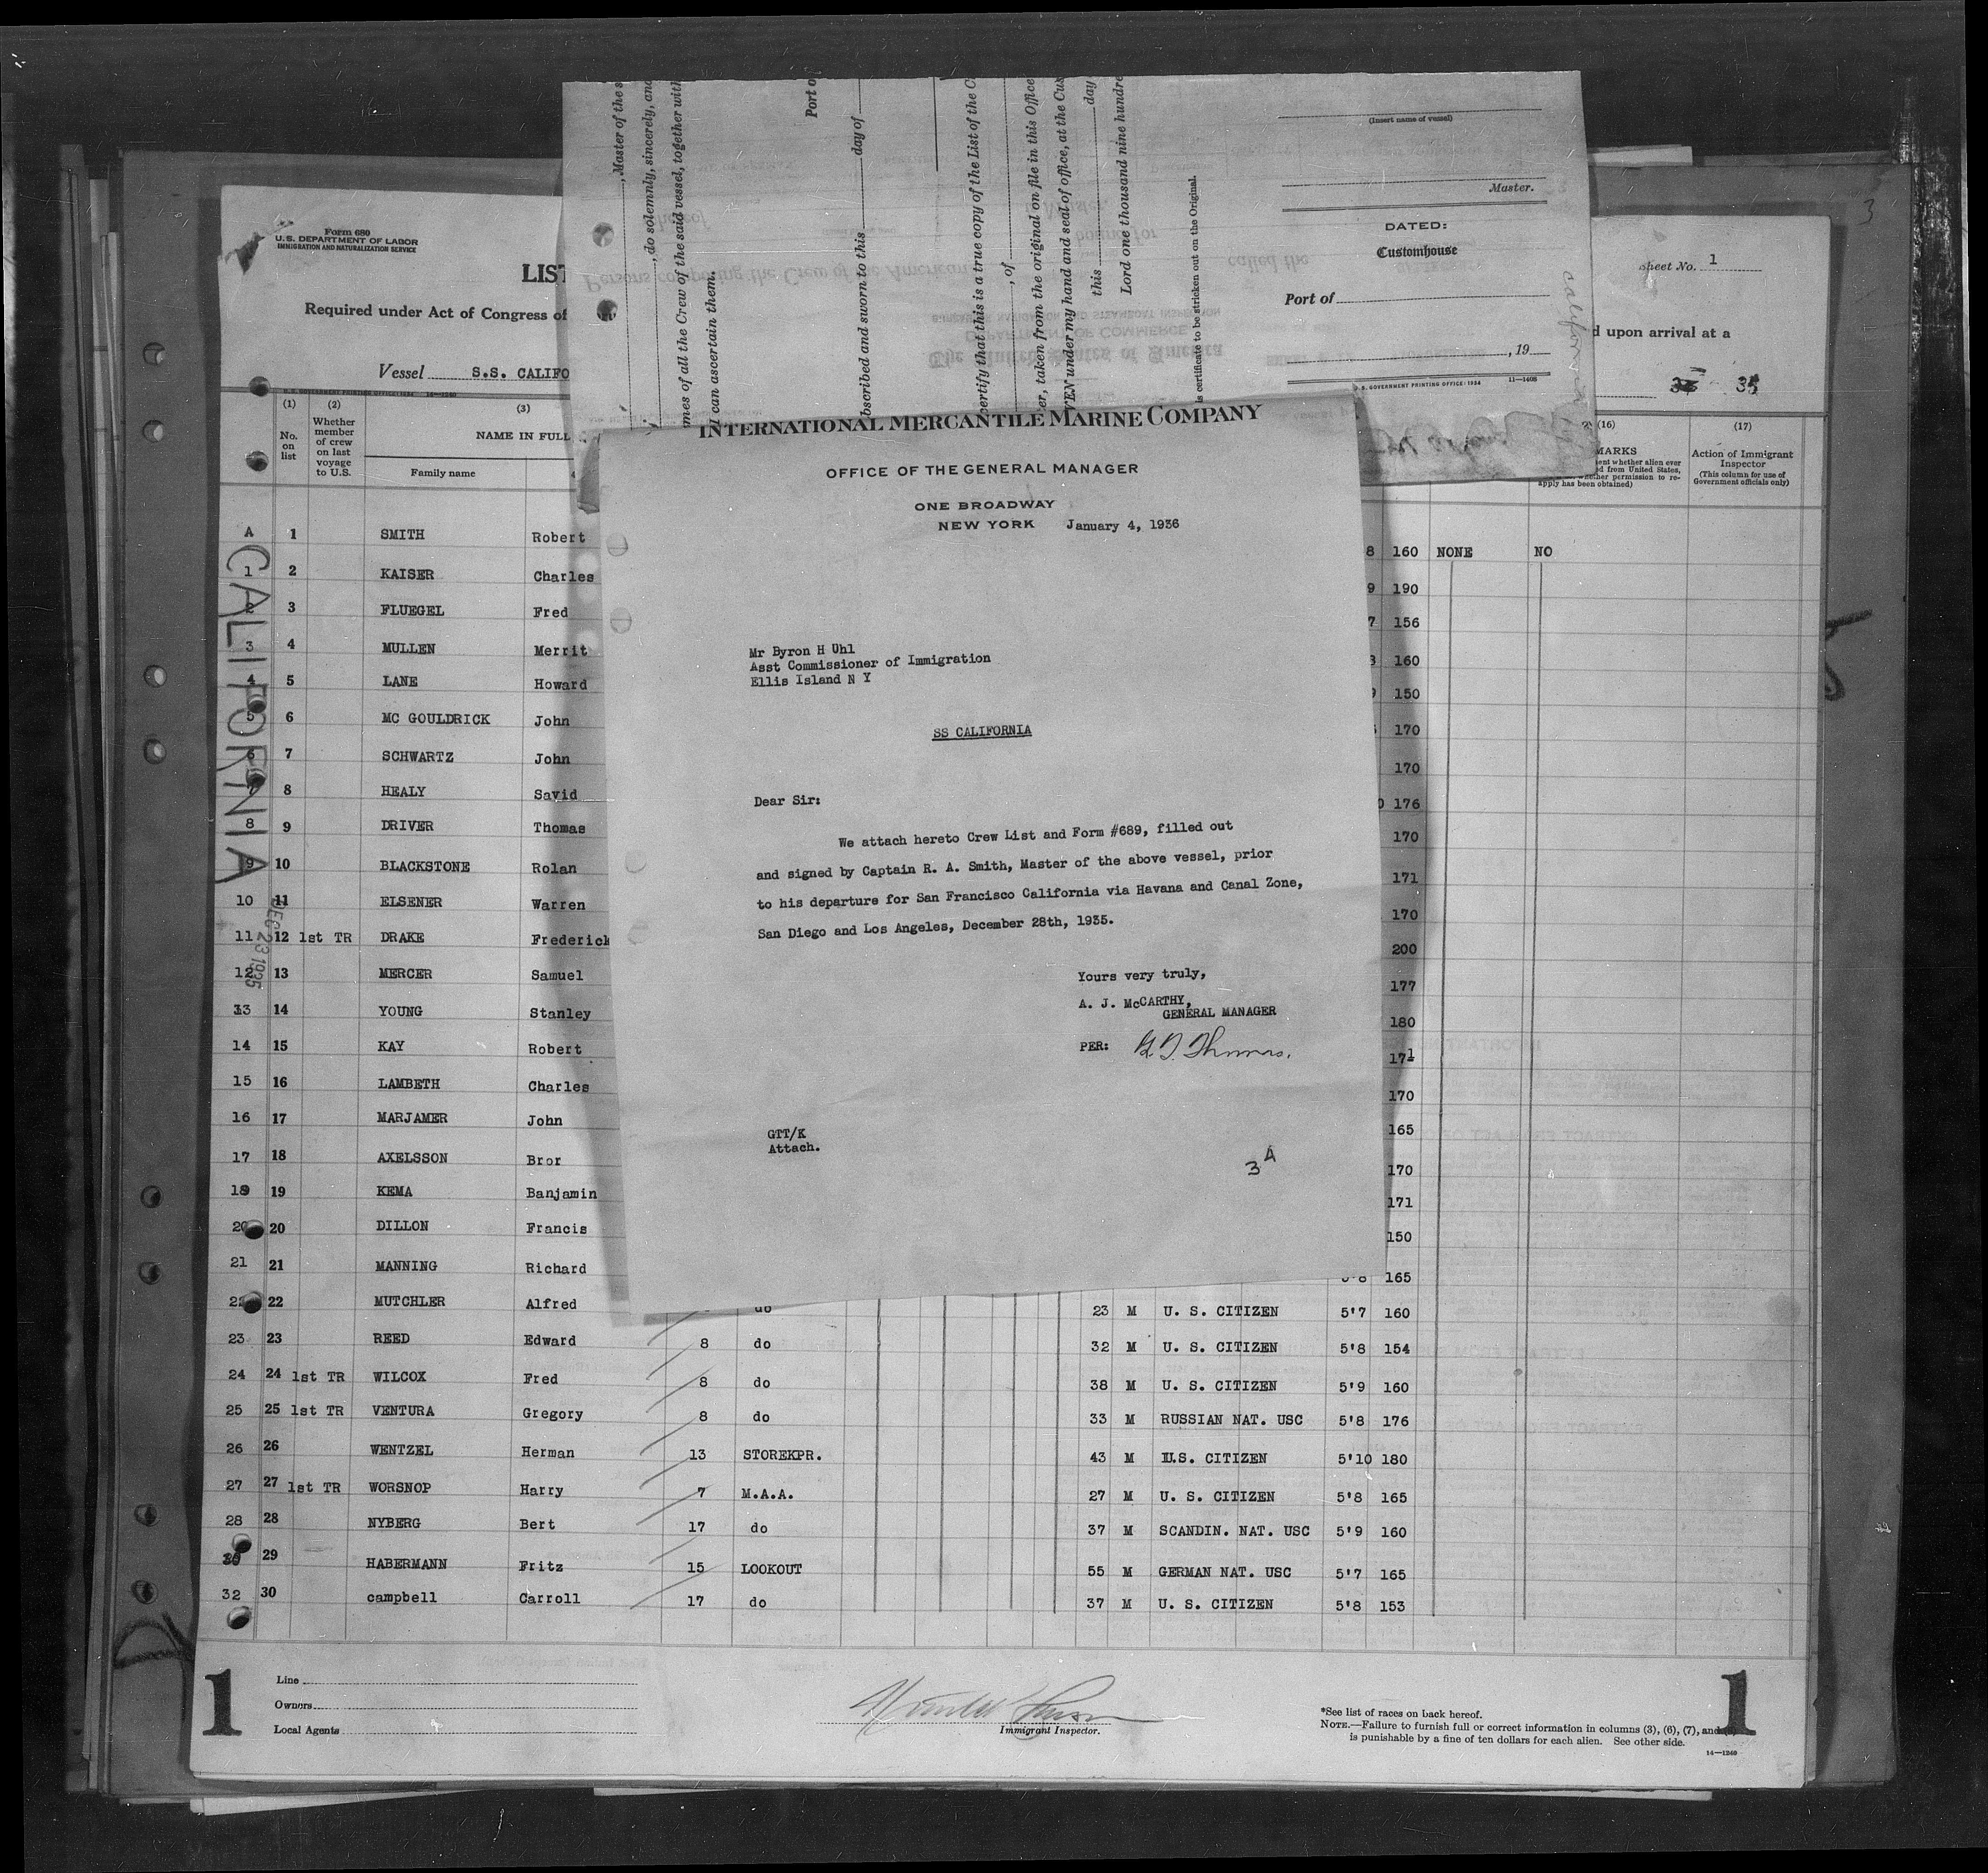 Form 680
U.S. DEPARTMENT OF LABOR
IMMIGRATION AND NATURALIZATION SERVICE
LIST
Required under Act of Congress of
Vessel S.S. CALIFO
U. S. GOVERNMENT PRINTING OFFICE: 1934 14—1240
(1) (2) (3)
No. on list
Whether member of crew on last voyage to U.S.
NAME IN FULL
Family name
Sheet No. 1
d upon arrival at a
35
(16) (17)
MARKS
ent whether alien ever
ed from United States,
whether permission to re-
apply has been obtained)
Action of Immigrant Inspector
(This column for use of Government officials only)
, Master of the s
, do solemnly, sincerely, and
mes of all the Crew of the said vessel, together with
I can ascertain them.
Port o
bscribed and sworn to this day of
ertify that this is a true copy of the List of the C
, of
er, taken from the original on file in this Office
VEN under my hand and seal of office, at the Cus
this day
Lord one thousand nine hundre
is certificate to be stricken out on the Original.
(Insert name of vessel)
Master.
DATED:
Customhouse
Port of
, 19
U. S. GOVERNMENT PRINTING OFFICE: 1934 11—1408
California
INTERNATIONAL MERCANTILE MARINE COMPANY
OFFICE OF THE GENERAL MANAGER
ONE BROADWAY
NEW YORK January 4, 1936
Mr Byron H Uhl
Asst Commissioner of Immigration
Ellis Island N Y
SS CALIFORNIA
Dear Sir:
We attach hereto Crew List and Form #689, filled out
and signed by Captain R. A. Smith, Master of the above vessel, prior
to his departure for San Francisco California via Havana and Canal Zone,
San Diego and Los Angeles, December 28th, 1935.
Yours very truly,
A. J. McCARTHY,
GENERAL MANAGER
PER: G. T. Thomas.
GTT/K
Attach.
3 A
CALIFORNIA
DEC 23 1935
A 1 SMITH Robert 8 160 NONE NO
1 2 KAISER Charles 9 190
2 3 FLUEGEL Fred 7 156
3 4 MULLEN Merrit 160
4 5 LANE Howard 150
5 6 MC GOULDRICK John 170
6 7 SCHWARTZ John 170
7 8 HEALY Savid 176
8 9 DRIVER Thomas 170
9 10 BLACKSTONE Rolan 171
10 11 ELSENER Warren 170
11 12 1st TR DRAKE Frederick 200
12 13 MERCER Samuel 177
13 14 YOUNG Stanley 180
14 15 KAY Robert 171
15 16 LAMBETH Charles 170
16 17 MARJAMER John 165
17 18 AXELSSON Bror 170
19 19 KEMA Banjamin 171
20 20 DILLON Francis 150
21 21 MANNING Richard 165
22 22 MUTCHLER Alfred do 23 M U. S. CITIZEN 5'7 160
23 23 REED Edward 8 do 32 M U. S. CITIZEN 5'8 154
24 24 1st TR WILCOX Fred 8 do 38 M U. S. CITIZEN 5'9 160
25 25 1st TR VENTURA Gregory 8 do 33 M RUSSIAN NAT. USC 5'8 176
26 26 WENTZEL Herman 13 STOREKPR. 43 M U.S. CITIZEN 5'10 180
27 27 1st TR WORSNOP Harry 7 M.A.A. 27 M U. S. CITIZEN 5'8 165
28 28 NYBERG Bert 17 do 37 M SCANDIN. NAT. USC 5'9 160
29 HABERMANN Fritz 15 LOOKOUT 55 M GERMAN NAT. USC 5'7 165
32 30 campbell Carroll 17 do 37 M U. S. CITIZEN 5'8 153
1
Line
Owners
Local Agents
Immigrant Inspector.
*See list of races on back hereof.
NOTE.—Failure to furnish full or correct information in columns (3), (6), (7), and
is punishable by a fine of ten dollars for each alien. See other side.
14—1240
1